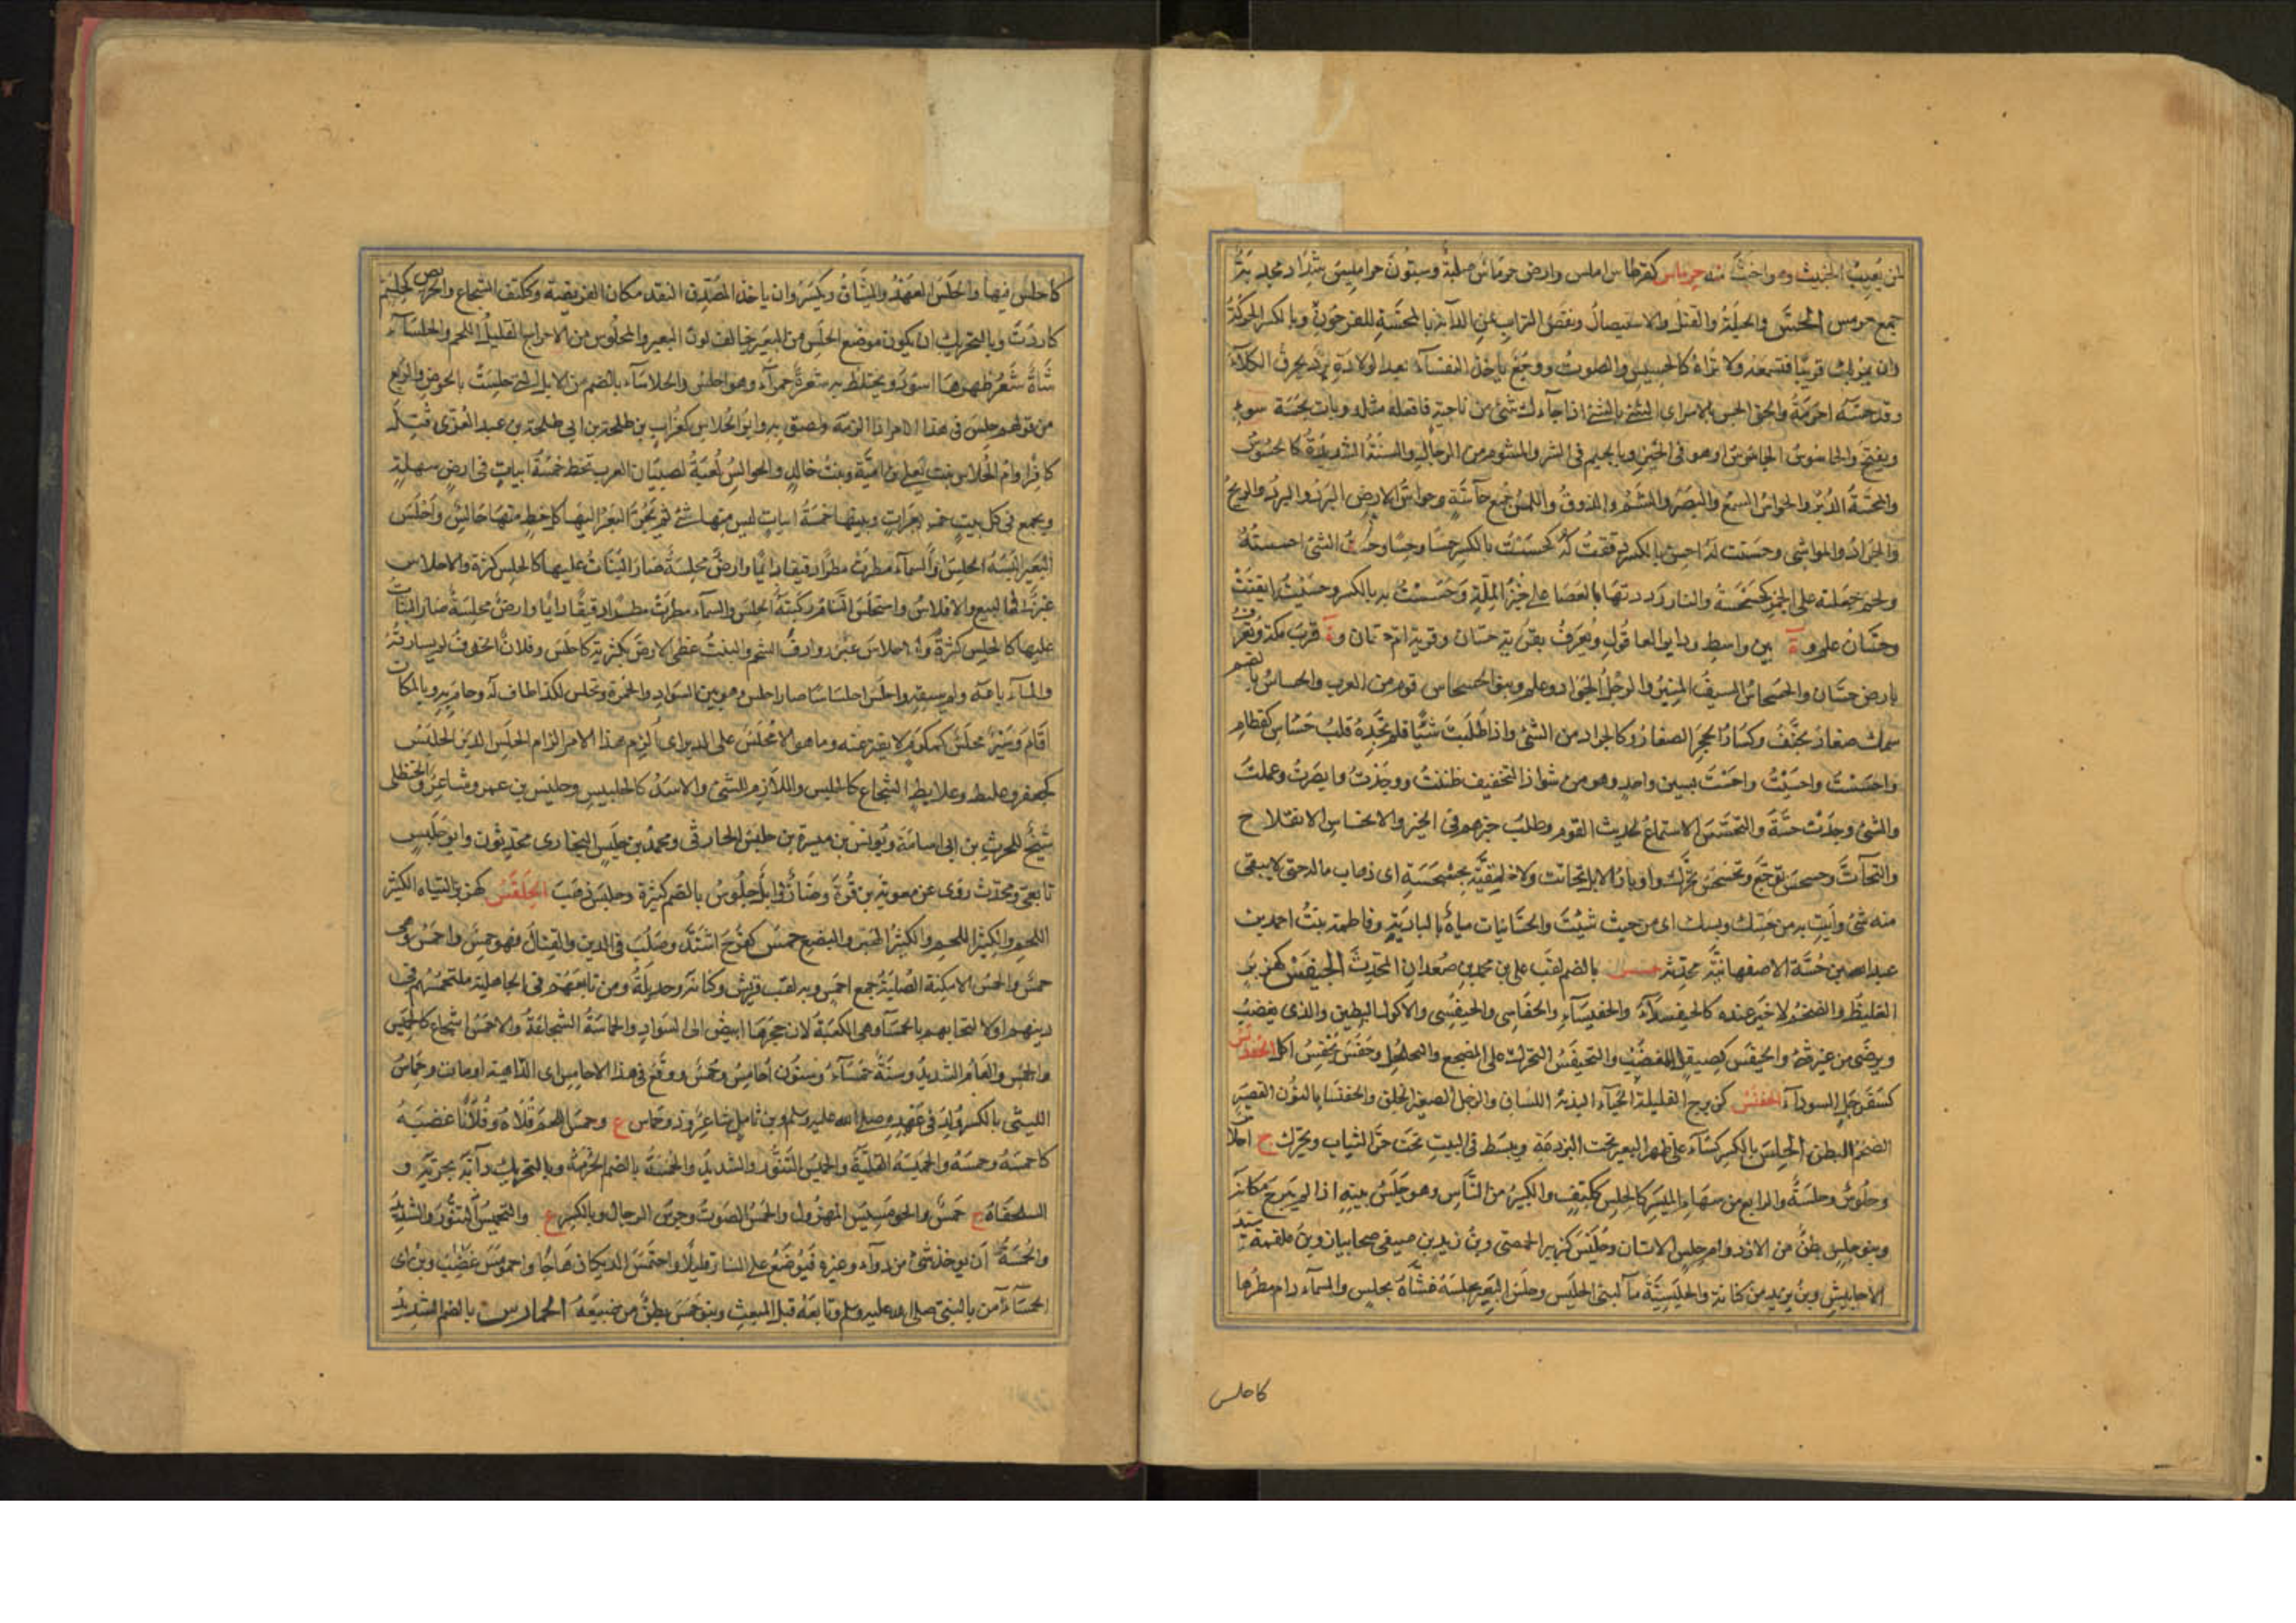 لمن يعيب الخبيث وهو اخبث منه حرماس كقرطاس املس وارض حرماس صلبة وسنون حرامس شداد مجدبة
جمع حرمس الحس والحيلة والقتل والاستيصال ونفض التراب عن الدابة بالمحسة للفرجون وبالكسر الحركة
وان يمر بك قريبا فتسمعه ولا تراه كالحسيس والصوت ووجع ياخذ النفساء بعد الولادة برد يحرق الكلاء
وقد حسه احرقه والحق الحس بالاس اى الشئ بالشئ اذا جاءك شئ من ناحية فافعل مثله وبات بحسة سوء
ويفتح والحاسوس الجاسوس او هو فى الخير وبالجيم فى الشر والمشوم من الرجال والسنة الشديدة كالحسوس
والمحسة الدبر والحواس السمع والبصر والشم والذوق واللمس جمع حاسة وحواس الارض البرد والبرد والريح
والجراد والمواشى وحسست له احس بالكسر رققت له كحسست بالكسر حسا وحسا وحسست الشئ احسسته
واللحم جعلته على الجمر كحسحسته والنار رددتها بالعصا على خبز الملة وحسست به بالكسر وحسيت ايقنت
وحسان علم وة بين واسط ودير العاقول ويعرف بقرية حسان وقرية ام حسان وة قرب مكة وتعرف
بارض حسان والحسحاس السيف المبير والرجل الجواد وعلم وبنو الحسحاس قوم من العرب والحساس بالضم
سمك صغار يجفف وكسار الحجر الصغار وكالجراد من الشئ واذا طلبت شيئا فلم تجده قلت حساس كقطام
واحسست واحسيت واحست بسين واحدة وهو من شواذ التخفيف ظننت ووجدت وابصرت وعملت
والشئ وجدت حسه والتحسس الاستماع لحديث القوم وطلب خبرهم فى الخير والانحساس الانقلاع
والتحات وحسحس توجع وتحسحس تحرك واوبار الابل تحاتت ولاخلفنه بحسحسة اى ذهاب ماله حتى لا يبقى
منه شئ وائت به من حسك وبسك اى من حيث شئت والحسانيات مياه بالبادية وفاطمة بنت احمد بن
عبدالله بن حسة الاصفهانية محدثة بالضم لقب على بن محمد بن صعدان المحدث الحيفس كهزبر
الغليظ والضخم لا خير عنده كالحيفساء والحفيساء والحفاسى والحيفسى والاكول البطين والذى يغضب
ويرضى من غير شئ والحيفس كصيقل المغضب والتحيفس التحرك على المضجع والتحلحل وحفس يحفس اكل الحفدلس
كسفرجل السوداء الحفنس كزبرج القليلة الحياء البذية اللسان والرجل الصغير الخلق والحفنسا بالنون القصير
الضخم البطن الحلس بالكسر كساء على ظهر البعير تحت البرذعة ويبسط فى البيت تحت حر الثياب ويحرك ج احلاس
وحلوس وحلسة والرابع من سهام الميسر كالحلس ككتف والكبير من الناس وهو حلس بيته اذا لم يبرح مكانه
وبنو حلس بطن من الازد وام حلس الاتان وحليس كزبير الحمصى وبن زيد بن صيفى صحابيان وبن علقمة سيد
الاحابيش وبن يزيد من كنانة والحليسية ماء لبنى الحليس وحلس البعير يحلسه غشاه بحلس والسماء دام مطرها
كاحلس
كاحلس فيهما والحلس العهد والميثاق ويكسر وان ياخذ المصدق النقد مكان الفريضة وككتف الشجاع والحريص كحلسم
كاردب وبالتحريك ان يكون موضع الحلس من البعير يخالف لون البعير والمحلوس من الاحراج القليل اللحم والحلساء
شاة شعر ظهرها اسود ويختلط به شعرة حمراء وهو احلس والحلاساء بالضم من الابل التى حلست بالحوض والمرتع
من قولهم حلس فى هذا الامر اذا لزمه ولصق به وابو الحلاس كغراب بن طلحة بن ابى طلحة بن عبد العزى قتل
كافرا وام الحلاس بنت يعلى بن امية وبنت خالد والحوالس لعبة لصبيان العرب تخط خمسة ابيات فى ارض سهلة
ويجمع فى كل بيت خمس بعرات وبينها خمسة ابيات ليس فيها شئ ثم يجر البعر اليها كل خط منها حالس واحلس
البعير البسه الحلس والسماء مطرت مطرا دقيقا دائما وارض محلسة صار النبات عليها كالحلس كثرة والاحلاس
غبن فى البيع والافلاس واستحلس السنام ركبته الحلس والسماء مطرت مطرا دقيقا دائما وارض محلسة صار النبات
عليها كالحلس كثرة وروادف الشحم والنبت غطى الارض بكثرته كاحلس وفلان الخوف لم يفارقه
والماء باعه ولم يسقه واحلس احلساسا صار احلس وهو بين السواد والحمرة وتحلس لكذا طاف له وحام به وبالمكان
اقام وسير محلس كمكرم لا يفتر عنه وما هو الا محلس على الدبر اى الزم هذا الامر الزام الحلس الدبر الحلبس
كجعفر وعلبط وعلابط الشجاع كالحلبيس واللازم للشئ والاسد كالحلبيس وحلبس بن عمرو شاعر والحنظلى
شيخ للحرث بن ابى اسامة ويونس بن ميسرة بن حلبس الحارثى ومحمد بن حلبس البخارى محدثون وابو حلبس
تابعى ومحدث روى عن معوية بن قرة وضأن وابل حلبوس بالضم كثيرة وحلبس ذهب الحلفس كهزبر الشياه الكثير
اللحم والكثير اللحم والكثير الهبر والبضيع حمس كفرح اشتد وصلب فى الدين والقتال فهو حمس واحمس وهم
حمس والحمس الامكنة الصلبة جمع احمس وبه لقب قريش وكنانة وجديلة ومن تابعهم فى الجاهلية لتحمسهم فى
دينهم او لالتجائهم بالحمساء وهى الكعبة لان حجرها ابيض الى السواد والحماسة الشجاعة والاحمس الشجاع كالحميس
والحمس والعام الشديد وسنة حمساء وسنون احامس وحمس ووقع فى هند الاحامس اى الداهية او مات وحماس
الليثى بالكسر ولد فى عهده صلى الله عليه وسلم وبن ثامل شاعر وذو حماس ع وحمس اللحم قلاه وفلانا اغضبه
كاحمسه وحمسه والحميسة القلية والحميس التنور والشديد والحمسة بالضم الحرمة وبالتحريك دابة بحرية و
السلحفاة ج حمس والحومسيس المهزول والحمس الصوت وجرس الرجال وبالكسر ع والتحميس التنور والشدة
والحمسة ان يوخذ شئ من دواء وغيره فيوضع على النار قليلا واحتمس الديكان هاجا واحمومس غضب وبن اى
الحمساء امن بالنبى صلى الله عليه وسلم وتابعه قبل المبعث وبنو حمس بطن من ضبيعة الحمارس بالضم الشديد